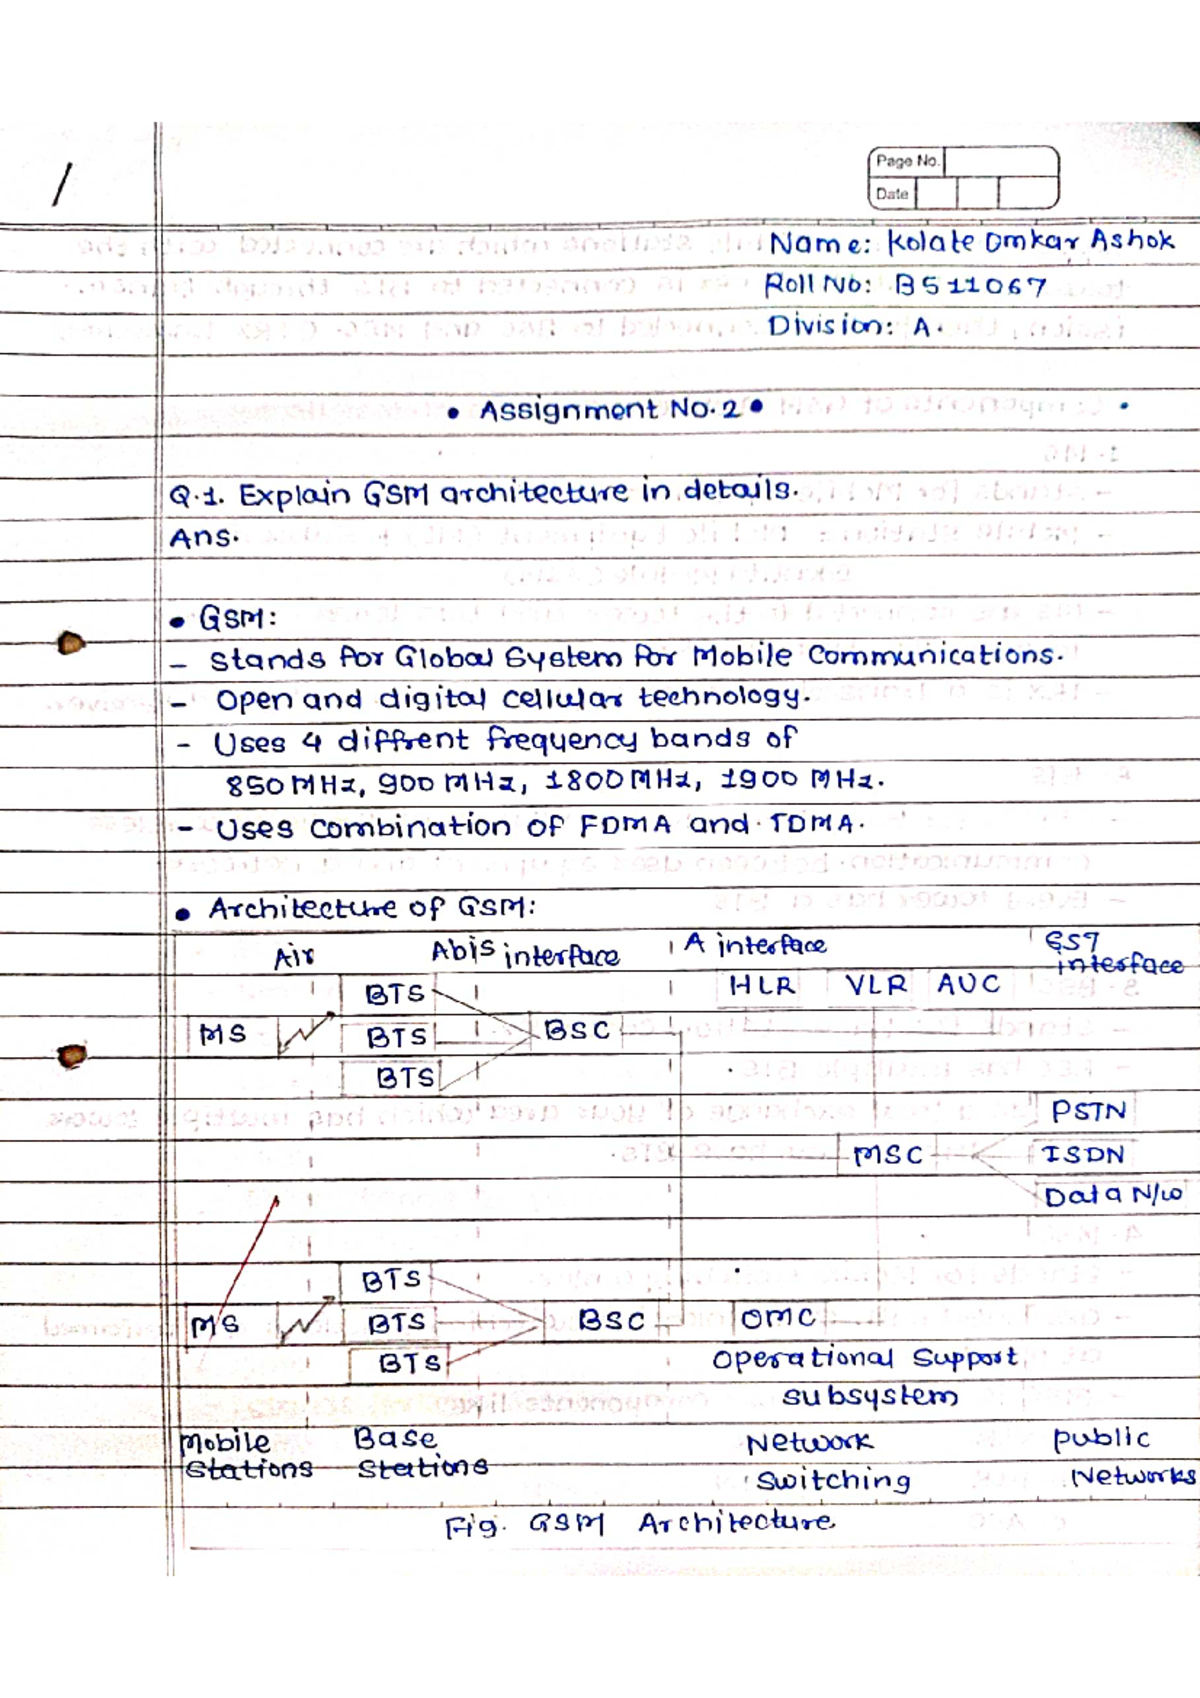 Page No.
Date
Name: Kolate Omkar Ashok
Roll No: B511067
Division: A.
• Assignment No. 2 •
Q.1. Explain GSM architecture in details.
Ans.
• GSM:
- Stands for Global System for Mobile Communications.
- Open and digital cellular technology.
- Uses 4 diffrent frequency bands of
850 MHz, 900 MHz, 1800 MHz, 1900 MHz.
- Uses combination of FDMA and TDMA.
• Architecture of GSM:
Air Abis interface A interface
interface
BTS HLR VLR AUC
MS BTS BSC
BTS
PSTN
MSC ISDN
Data N/w
BTS
MS BTS BSC OMC
BTS Operational Support
subsystem
Mobile Base Network public
Stations Stations Switching Networks
Fig. GSM Architecture